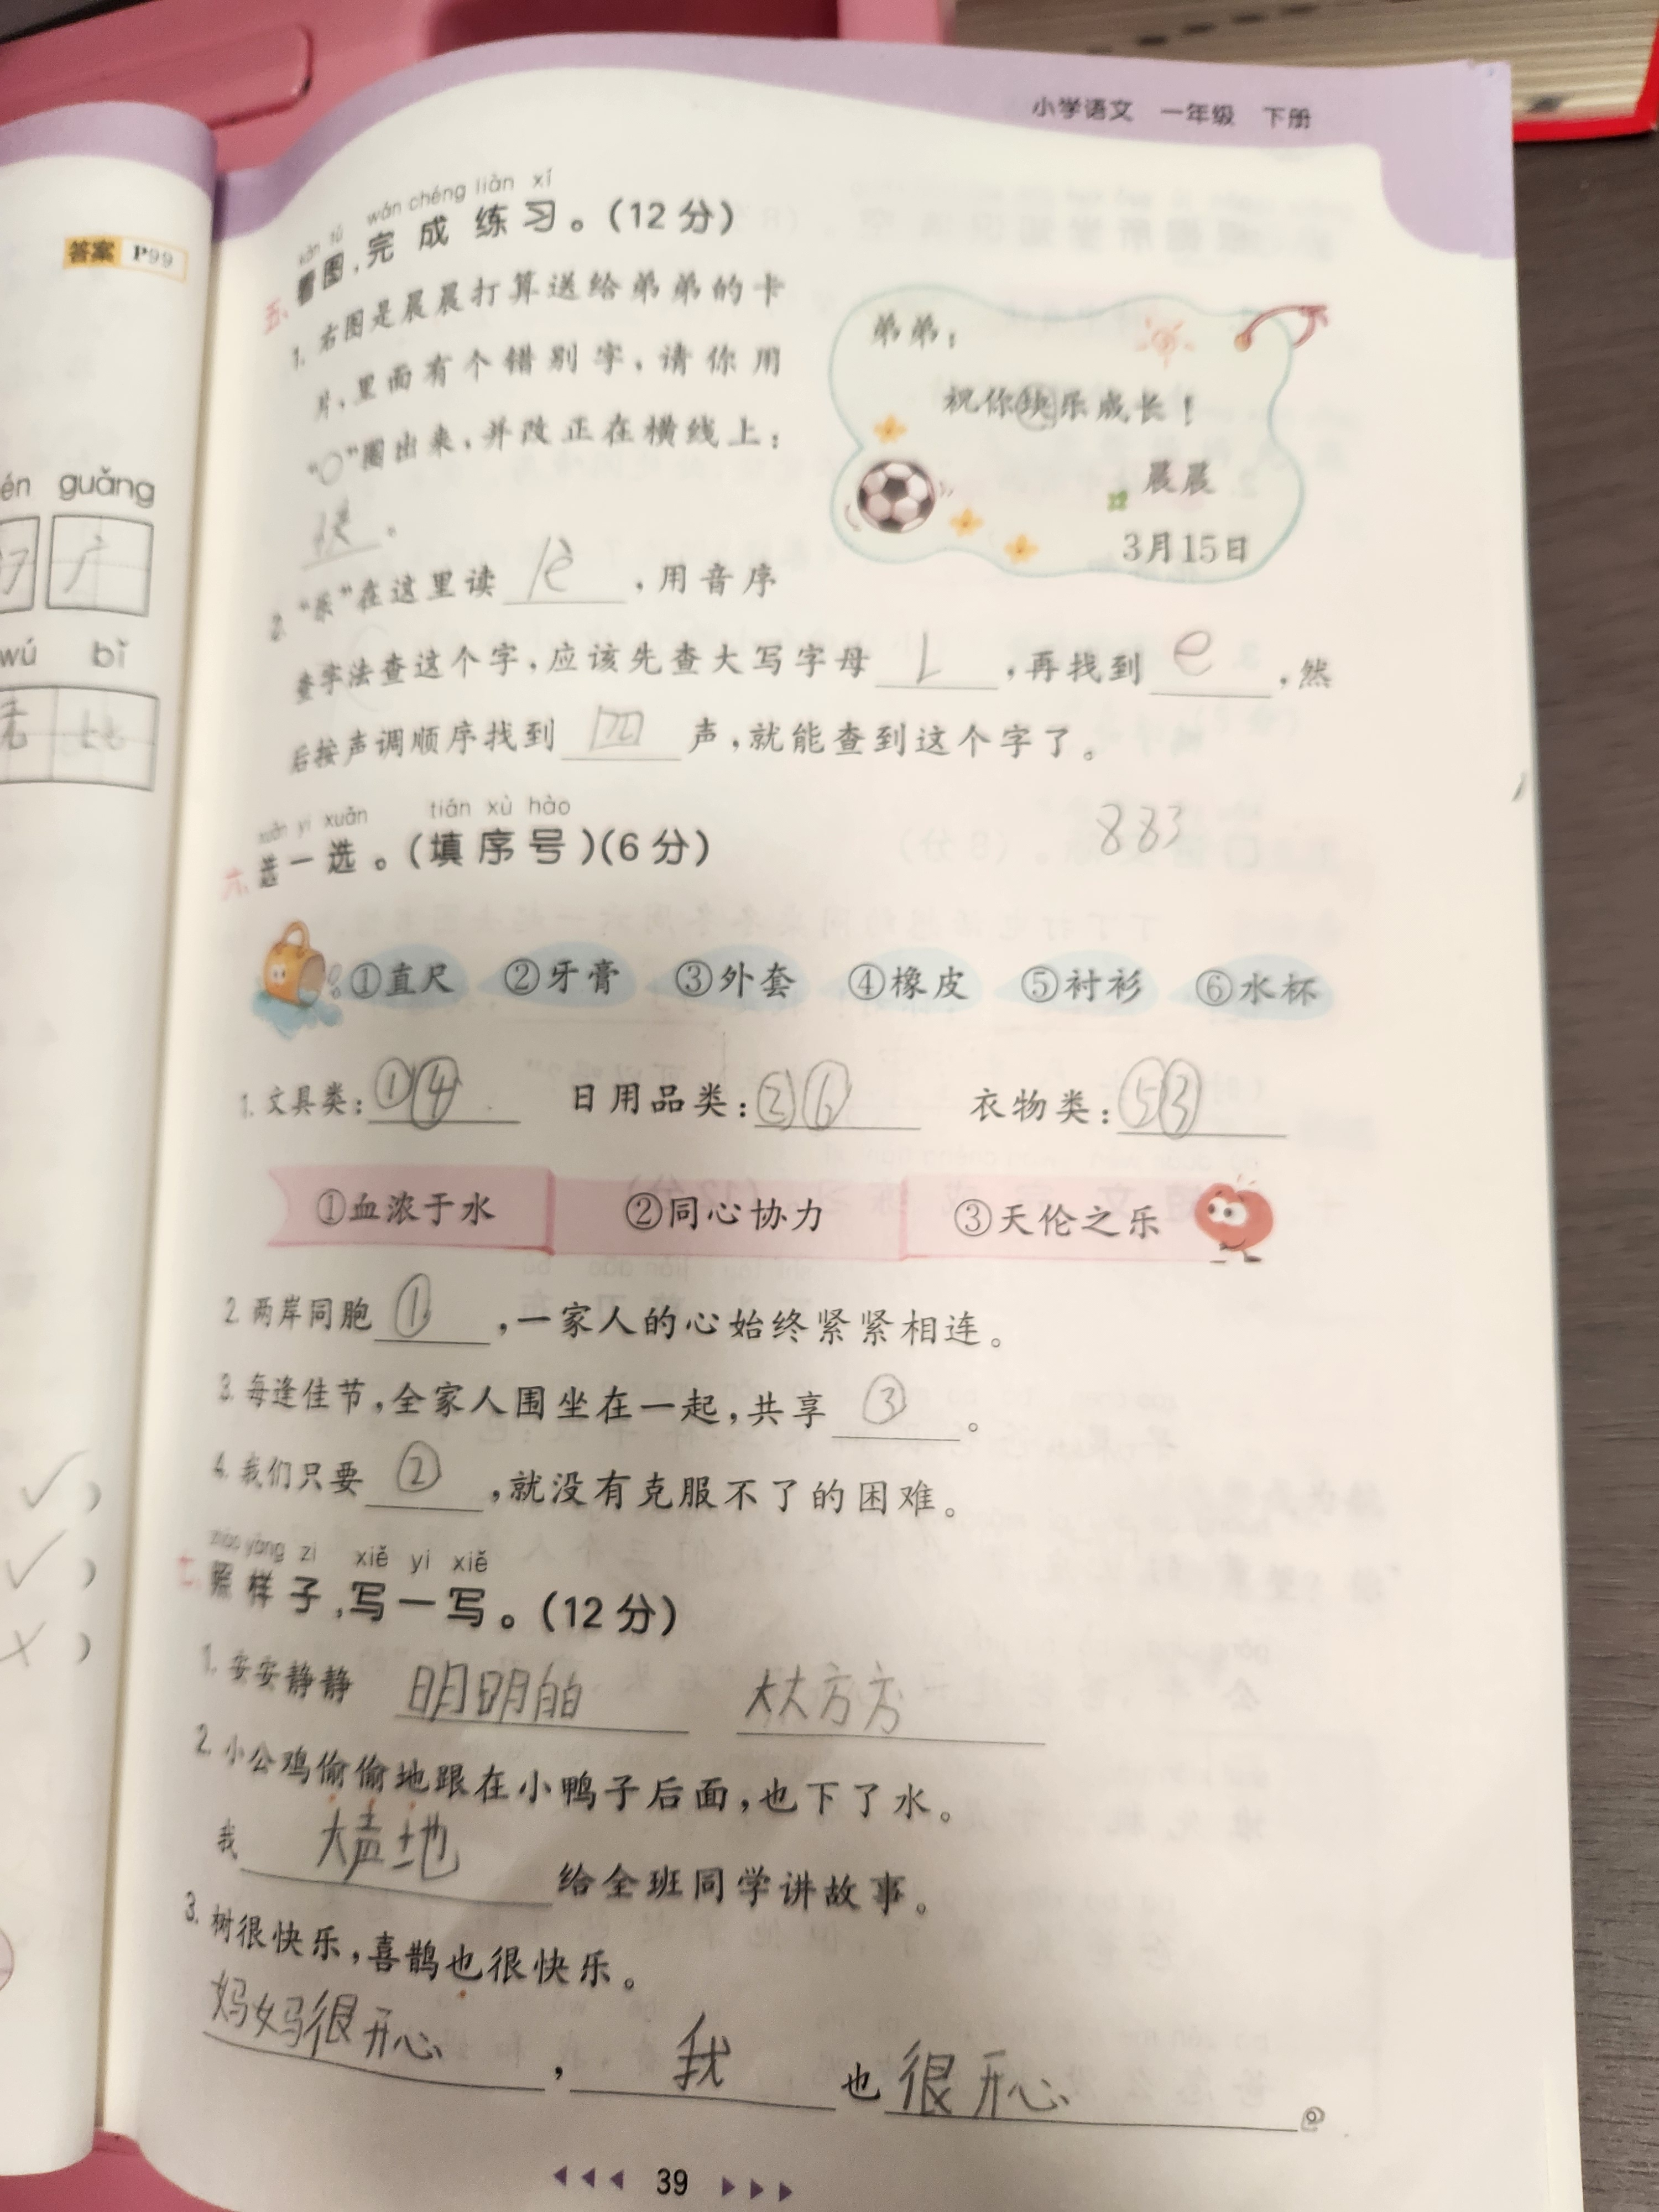 小学语文 一年级 下册
答案 P99
én guǎng
广
wú bǐ
kàn tú wán chéng liàn xí
五、看图,完成练习。(12分)
1. 右图是晨晨打算送给弟弟的卡
片,里面有个错别字,请你用
“○”圈出来,并改正在横线上:
快。
弟弟:
祝你快乐成长!
晨晨
3月15日
2. “乐”在这里读 lè ,用音序
查字法查这个字,应该先查大写字母 L ,再找到 e ,然
后按声调顺序找到 四 声,就能查到这个字了。
883
xuǎn yi xuǎn tián xù hào
六、选一选。(填序号)(6分)
①直尺 ②牙膏 ③外套 ④橡皮 ⑤衬衫 ⑥水杯
1. 文具类:①④ 日用品类:②⑥ 衣物类:⑤③
①血浓于水 ②同心协力 ③天伦之乐
2. 两岸同胞 ① ,一家人的心始终紧紧相连。
3. 每逢佳节,全家人围坐在一起,共享 ③ 。
4. 我们只要 ② ,就没有克服不了的困难。
zhào yàng zi xiě yi xiě
七、照样子,写一写。(12分)
1. 安安静静 明明白白 大大方方
2. 小公鸡偷偷地跟在小鸭子后面,也下了水。
我 大声地 给全班同学讲故事。
3. 树很快乐,喜鹊也很快乐。
妈妈很开心 , 我 也 很开心 。
39